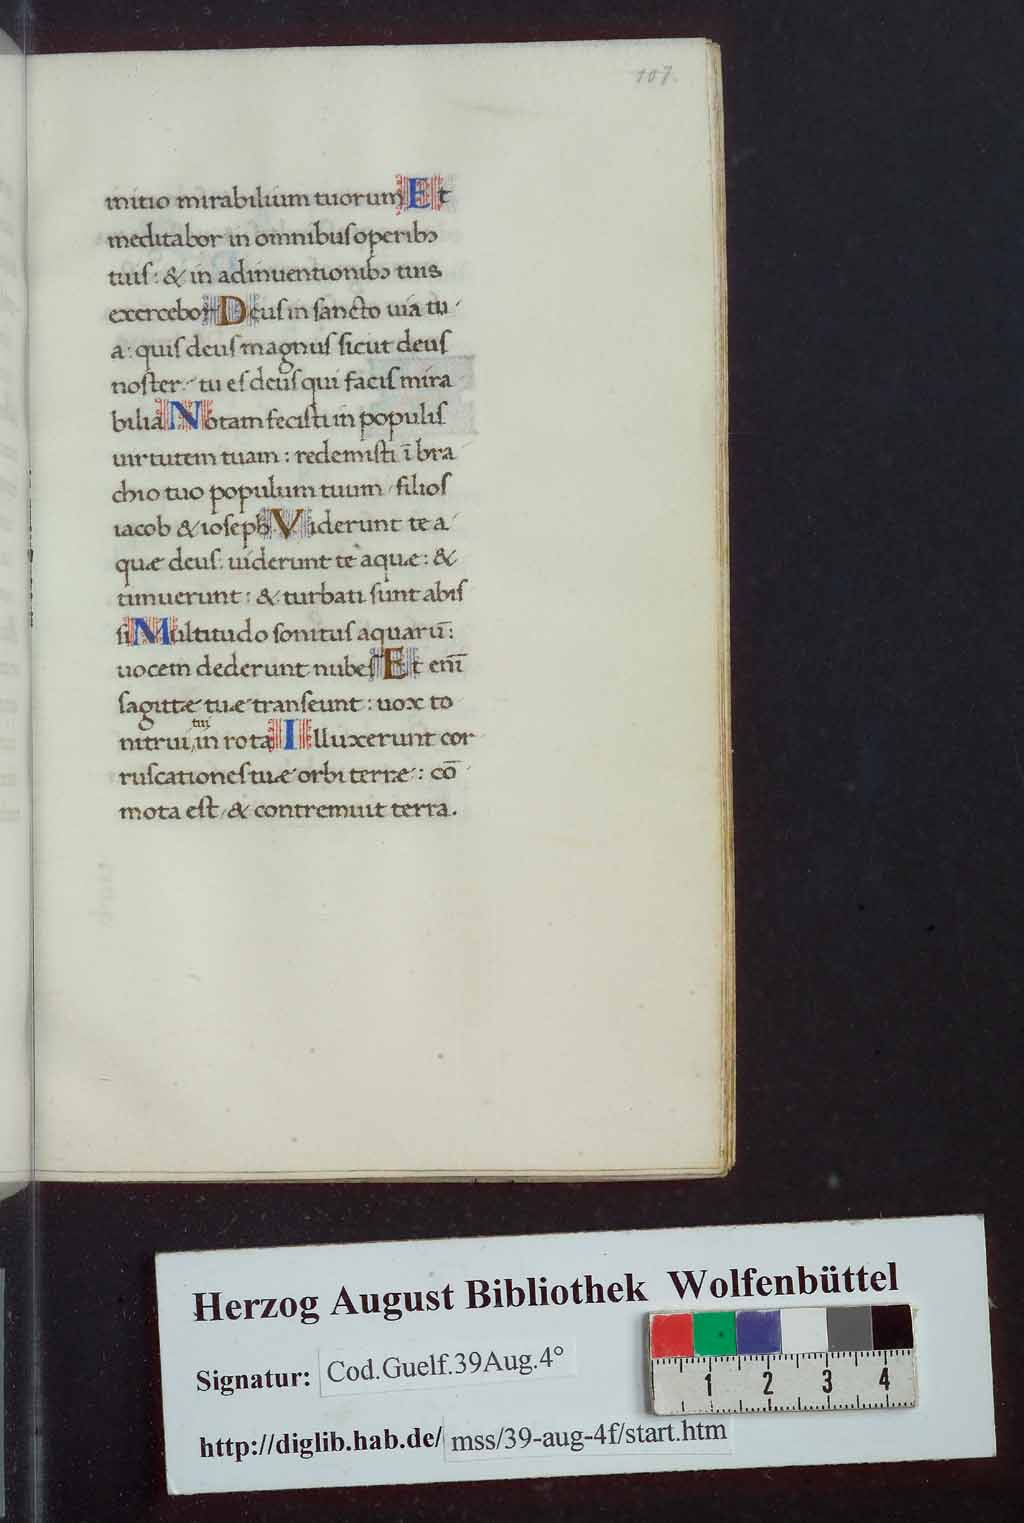 107.
initio mirabilium tuorum Et
meditabor in omnibus operibꝫ
tuis: & in adinuentionibꝫ tuis
exercebor Deus in sancto uia tu
a: quis deus magnus sicut deus
noster: tu es deus qui facis mira
bilia Notam fecisti in populis
uirtutem tuam: redemisti ī bra
chio tuo populum tuum / filios
iacob & ioseph Viderunt te a
quæ deus: uiderunt te aquæ: &
timuerunt: & turbati sunt abis
si Multitudo sonitus aquarū:
uocem dederunt nubes Et eni͞
sagittæ tuæ transeunt: uox to
tui
nitrui, in rota Illuxerunt cor
ruscationes tuæ orbi terræ: cō
mota est / & contremuit terra.
Herzog August Bibliothek Wolfenbüttel
Signatur: Cod.Guelf.39Aug.4°
1 2 3 4
http://diglib.hab.de/ mss/39-aug-4f/start.htm